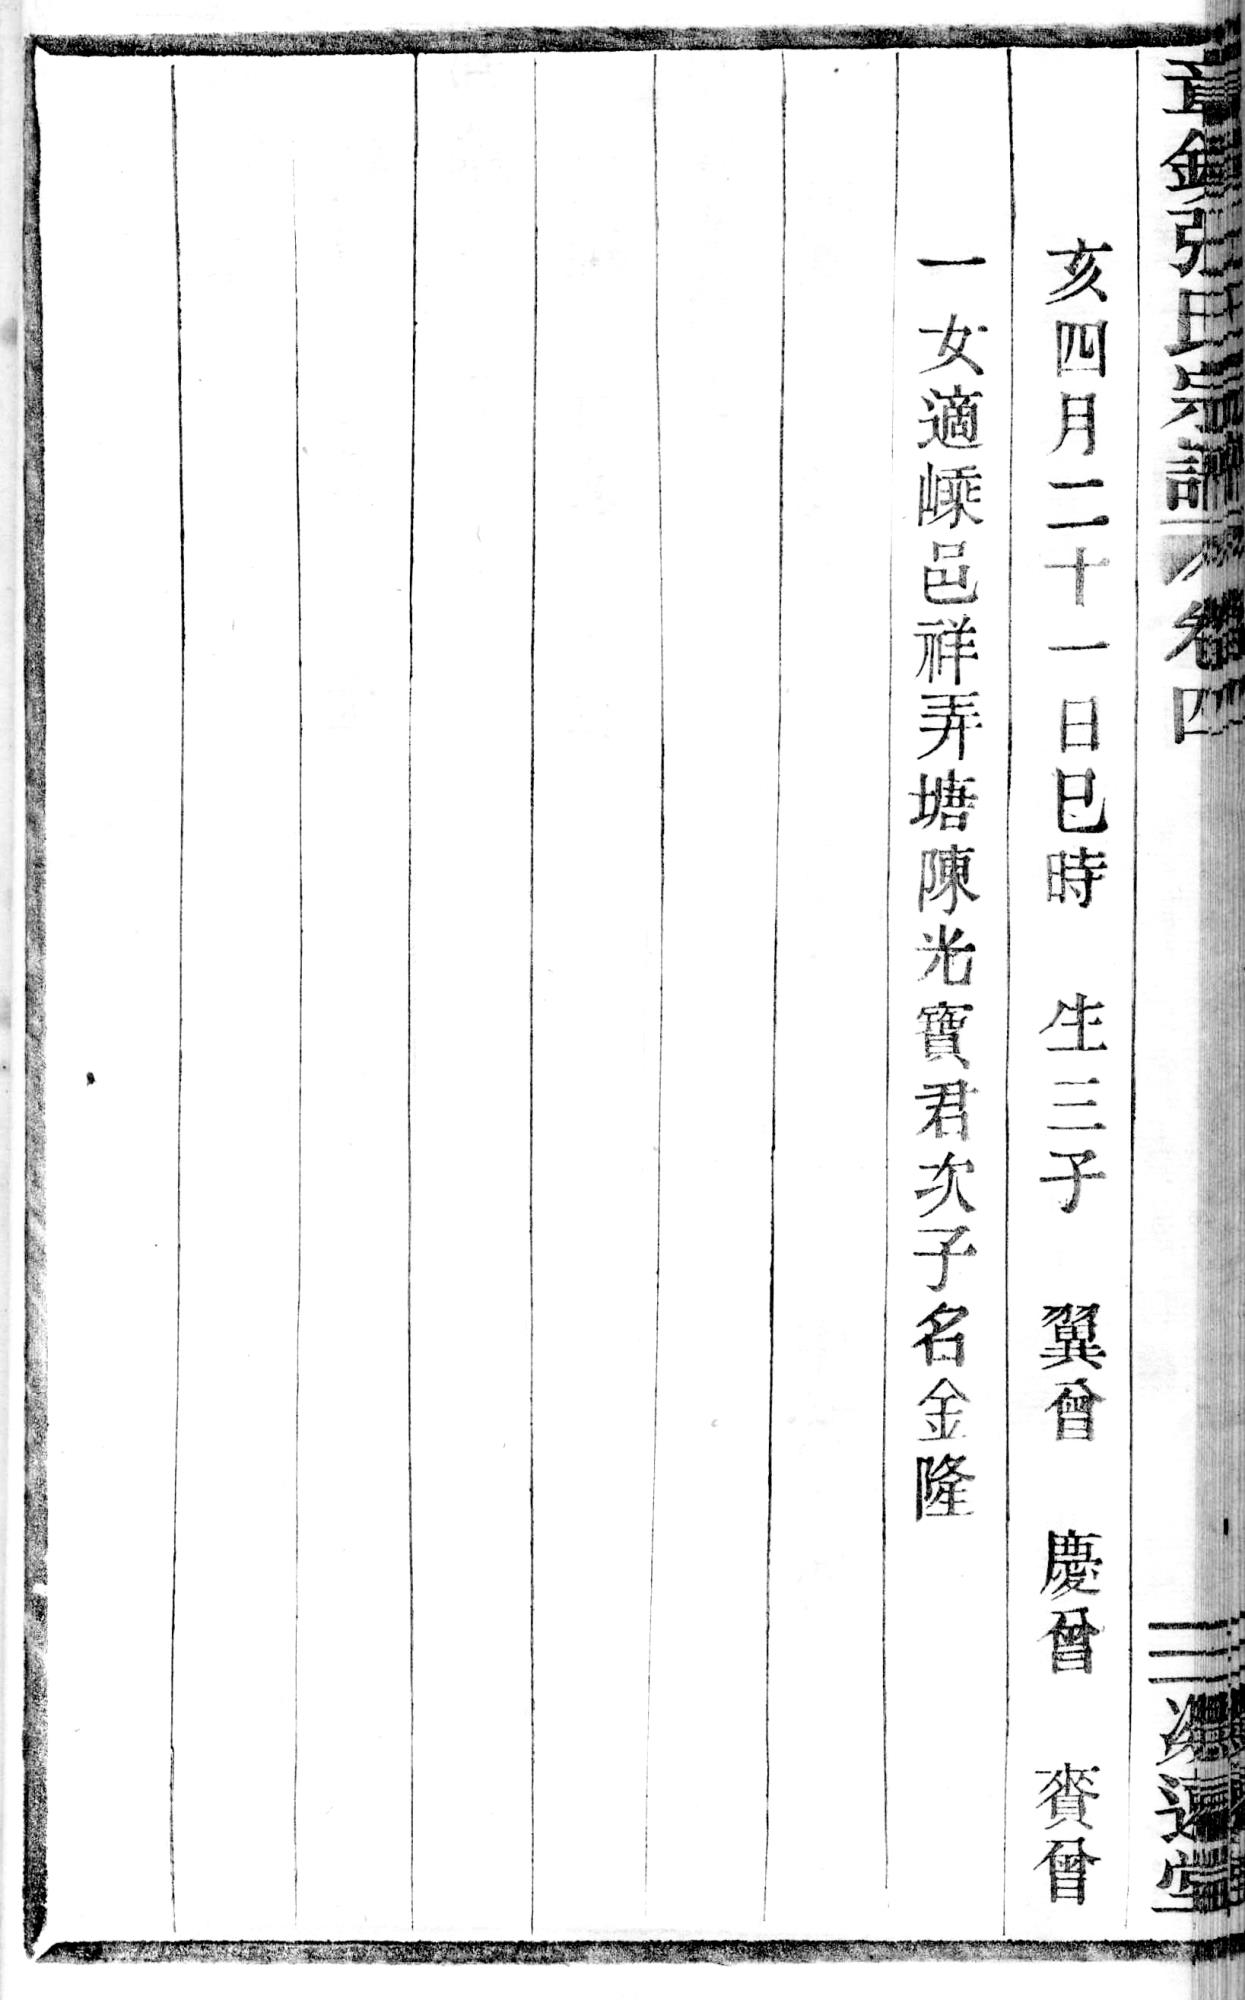 張氏宗譜 卷四
亥四月二十一日巳時 生三子 翼曾 慶曾 賚曾
一女適嵊邑祥弄塘陳光寶君次子名金隆